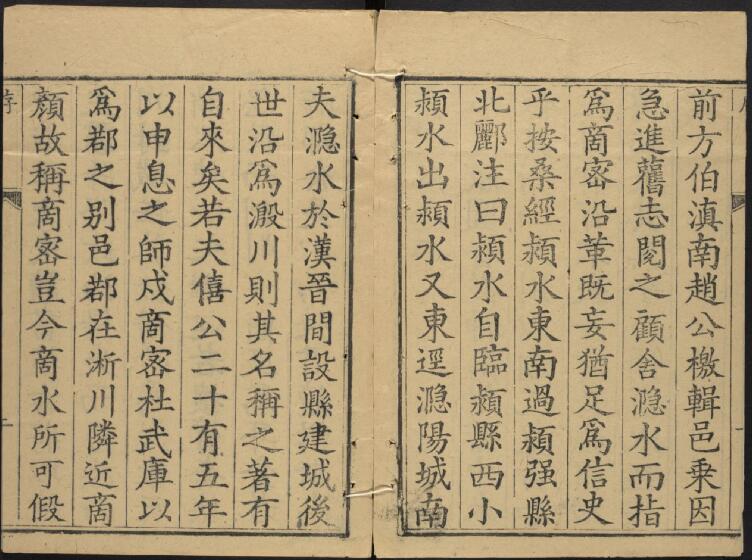 前方伯滇南趙公檄輯邑乘因
急進舊志閱之顧舍㶏水而指
爲商宻沿革既妄猶足爲信史
乎按桑經潁水東南過潁强縣
北酈注曰潁水自臨潁縣西小
㶏水出潁水又東逕㶏陽城南
夫㶏水於漢晉間設縣建城後
世沿爲溵川則其名稱之著有
自來矣若夫僖公二十有五年
以申息之師戍商宻杜武庫以
爲鄀之别邑鄀在淅川隣近商
顏故稱商宻豈今商水所可假
序